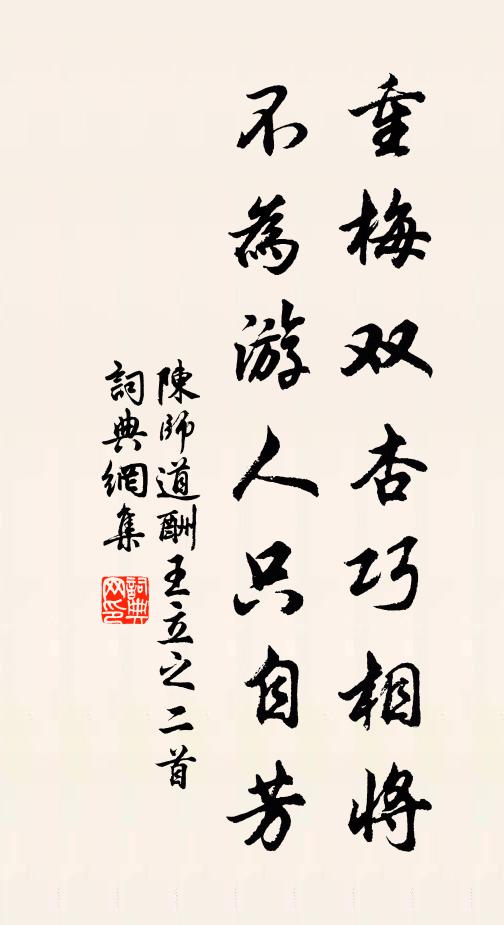 重梅双杏巧相將
不為游人只自芳
陳師道酬王立之二首
詞典網集
詞典網印